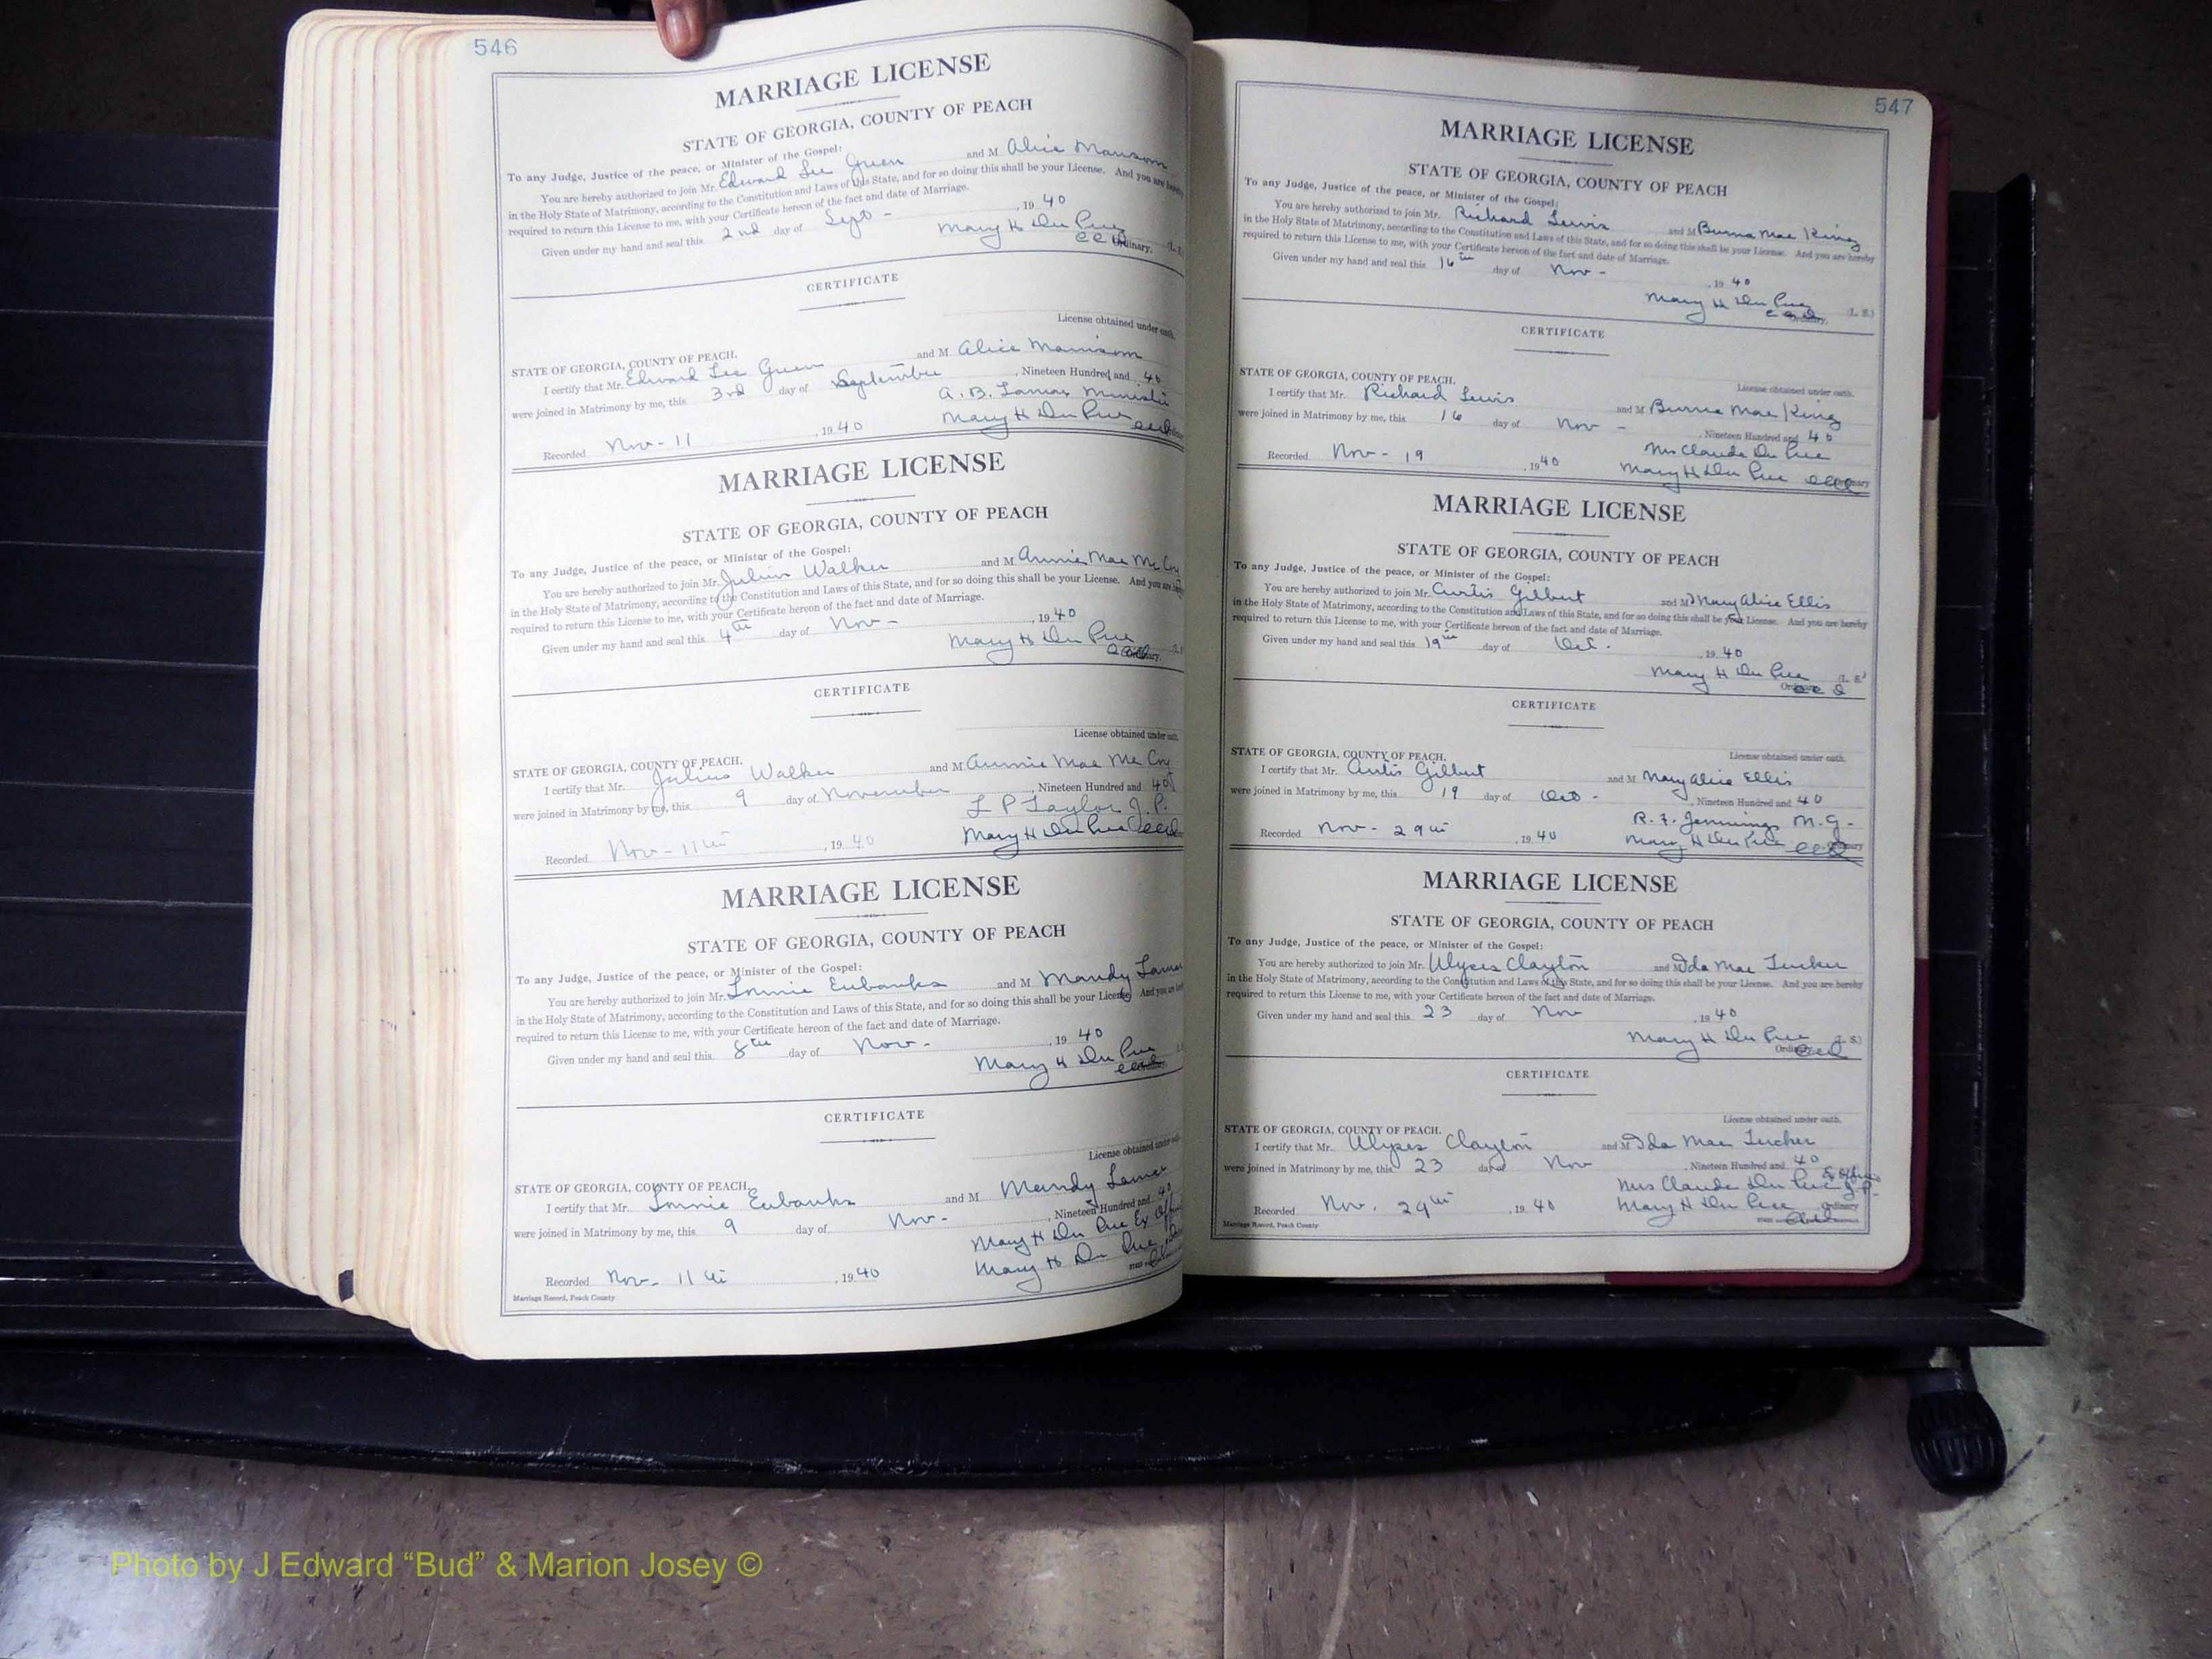 546
MARRIAGE LICENSE
STATE OF GEORGIA, COUNTY OF PEACH
To any Judge, Justice of the peace, or Minister of the Gospel:
You are hereby authorized to join Mr. Edward Lee Green and M Alice
in the Holy State of Matrimony, according to the Constitution and Laws of this State, and for so doing this shall be your License. And you are hereby
required to return this License to me, with your Certificate hereon of the fact and date of Marriage.
Given under my hand and seal this 2nd day of Sept - , 19 40
Mary H Du Pree
Ordinary. (L. S.)
CERTIFICATE
License obtained under oath.
STATE OF GEORGIA, COUNTY OF PEACH.
I certify that Mr. Edward Lee Green and M Alice
were joined in Matrimony by me, this 3rd day of September , Nineteen Hundred and 40
A. B. Lamar Minister
Recorded Nov - 11 , 19 40 Mary H Du Pree
MARRIAGE LICENSE
STATE OF GEORGIA, COUNTY OF PEACH
To any Judge, Justice of the peace, or Minister of the Gospel:
You are hereby authorized to join Mr. Julius Walker and M Annie Mae Mc Coy
in the Holy State of Matrimony, according to the Constitution and Laws of this State, and for so doing this shall be your License. And you are
required to return this License to me, with your Certificate hereon of the fact and date of Marriage.
Given under my hand and seal this 4th day of Nov - , 19 40
Mary H Du Pree
Ordinary.
CERTIFICATE
License obtained under oath.
STATE OF GEORGIA, COUNTY OF PEACH.
I certify that Mr. Julius Walker and M Annie Mae Mc Coy
were joined in Matrimony by me, this 9 day of November , Nineteen Hundred and 40
L P Taylor J. P.
Recorded Nov - 11th , 19 40 Mary H Du Pree
MARRIAGE LICENSE
STATE OF GEORGIA, COUNTY OF PEACH
To any Judge, Justice of the peace, or Minister of the Gospel:
You are hereby authorized to join Mr. Lonnie Eubanks and M Mandy Lamar
in the Holy State of Matrimony, according to the Constitution and Laws of this State, and for so doing this shall be your License. And you are
required to return this License to me, with your Certificate hereon of the fact and date of Marriage.
Given under my hand and seal this 8th day of Nov - , 19 40
Mary H Du Pree
CERTIFICATE
License obtained under
STATE OF GEORGIA, COUNTY OF PEACH.
I certify that Mr. Lonnie Eubanks and M Mandy Lamar
were joined in Matrimony by me, this 9 day of Nov - , Nineteen Hundred and 40
Mary H Du Pree Ex
Recorded Nov - 11th , 19 40 Mary H Du Pree
Marriage Record, Peach County
547
MARRIAGE LICENSE
STATE OF GEORGIA, COUNTY OF PEACH
To any Judge, Justice of the peace, or Minister of the Gospel:
You are hereby authorized to join Mr. Richard Lewis and M Burna Mae King
in the Holy State of Matrimony, according to the Constitution and Laws of this State, and for so doing this shall be your License. And you are hereby
required to return this License to me, with your Certificate hereon of the fact and date of Marriage.
Given under my hand and seal this 16th day of Nov - , 19 40
Mary H Du Pree
Ordinary. (L. S.)
CERTIFICATE
License obtained under oath.
STATE OF GEORGIA, COUNTY OF PEACH.
I certify that Mr. Richard Lewis and M Mae King
were joined in Matrimony by me, this 16 day of Nov - , Nineteen Hundred and 40
Mrs Claude Du Pree
Recorded Nov - 19 , 19 40 Mary H Du Pree
MARRIAGE LICENSE
STATE OF GEORGIA, COUNTY OF PEACH
To any Judge, Justice of the peace, or Minister of the Gospel:
You are hereby authorized to join Mr. Curtis Gilbert and M Mary Alice Ellis
in the Holy State of Matrimony, according to the Constitution and Laws of this State, and for so doing this shall be your License. And you are hereby
required to return this License to me, with your Certificate hereon of the fact and date of Marriage.
Given under my hand and seal this 19th day of Oct. , 19 40
Mary H Du Pree (L. S.)
CERTIFICATE
License obtained under oath.
STATE OF GEORGIA, COUNTY OF PEACH.
I certify that Mr. Curtis Gilbert and M Mary Alice Ellis
were joined in Matrimony by me, this 19 day of Oct - , Nineteen Hundred and 40
R. F. Jennings M. G.
Recorded Nov - 29th , 19 40 Mary H Du Pree
MARRIAGE LICENSE
STATE OF GEORGIA, COUNTY OF PEACH
To any Judge, Justice of the peace, or Minister of the Gospel:
You are hereby authorized to join Mr. Ulyses Clayton and M Ida Mae Tucker
in the Holy State of Matrimony, according to the Constitution and Laws of this State, and for so doing this shall be your License. And you are hereby
required to return this License to me, with your Certificate hereon of the fact and date of Marriage.
Given under my hand and seal this 23 day of Nov , 19 40
Mary H Du Pree
CERTIFICATE
License obtained under oath.
STATE OF GEORGIA, COUNTY OF PEACH.
I certify that Mr. Ulyses Clayton and M Ida Mae Tucker
were joined in Matrimony by me, this 23 day of Nov , Nineteen Hundred and 40
Mrs Claude Du Pree J. P.
Recorded Nov. 29th , 19 40 Mary H Du Pree Ordinary
Marriage Record, Peach County
Photo by J Edward “Bud” & Marion Josey ©